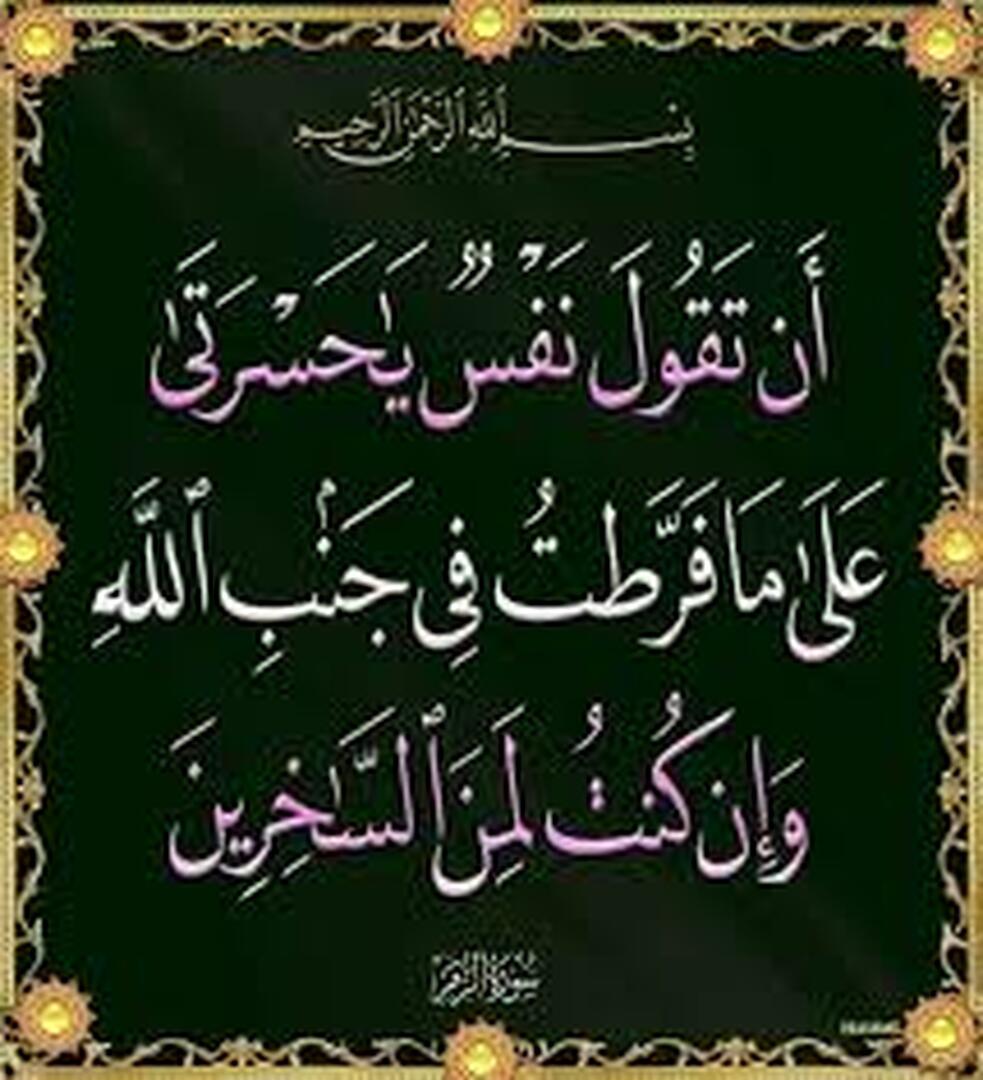 بِسْمِ ٱللَّهِ ٱلرَّحْمَٰنِ ٱلرَّحِيمِ
أَن تَقُولَ نَفْسٌ يَٰحَسْرَتَىٰ
عَلَىٰ مَا فَرَّطتُ فِى جَنۢبِ ٱللَّهِ
وَإِن كُنتُ لَمِنَ ٱلسَّٰخِرِينَ
سورة الزمر